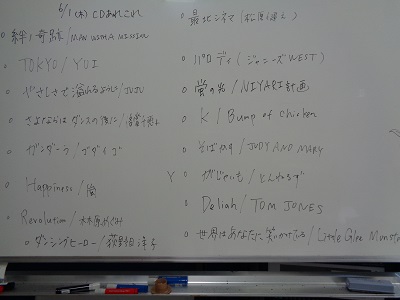 6/1(木) CDあれこれ
○ 絆ノ奇跡/MAN WITH A MISSION
○ TOKYO/YUI
○ やさしさで溢れるように/JUJU
○ さよならはダンスの後に/倍賞千恵子
○ ガンダーラ/ゴダイゴ
○ Happiness/嵐
○ Revolution/
○ ダンシングヒーロー/荻野目洋子
○ /松尾
○ パロディ(ジャニーズWEST)
○ 蛍の光/NIYARI計画
○ K/Bump of Chicken
○ そばかす/JUDY AND MARY
○ ガじゃいも/とんねるず
○ Deliah/TOM JONES
○ 世界はあなたに笑いかけている/Little Glee Monster